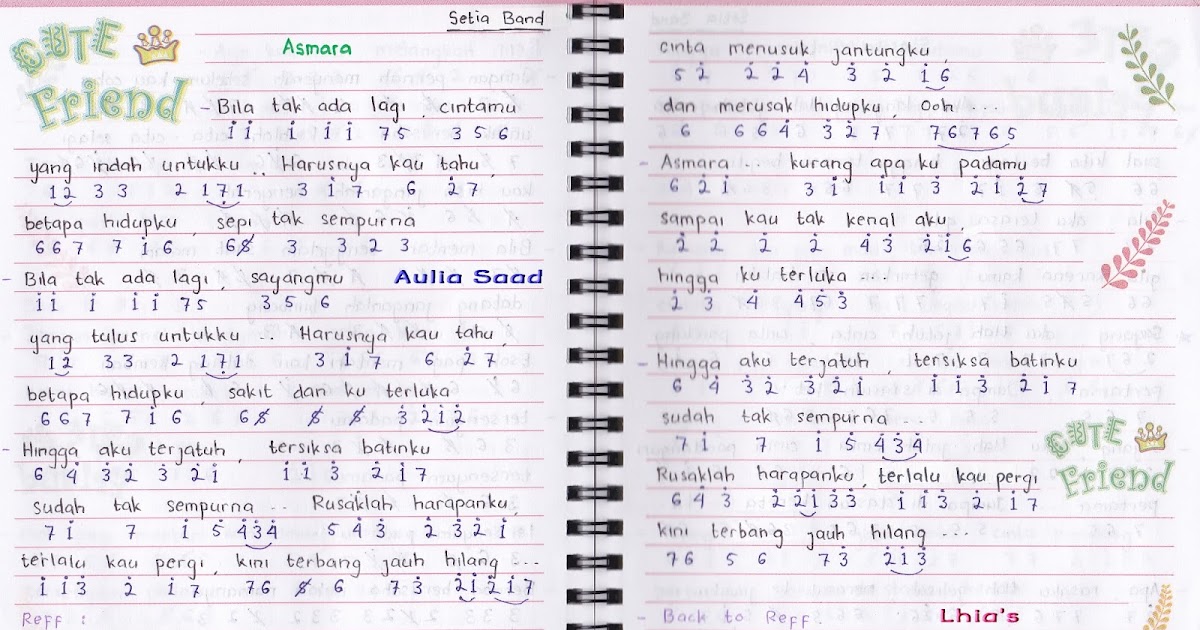 Setia Band
CUTE
Friend
Asmara
- Bila tak ada lagi, cintamu
i̇ i̇ i̇ i̇ i̇ 7 5 3 5 6
yang indah untukku .. Harusnya kau tahu,
1̇ 2̇ 3̇ 3̇ 2̇ 1̇ 7 1̇ 3̇ 1̇ 7 6 2̇ 7
betapa hidupku, sepi, tak sempurna
6 6 7 7 1̇ 6 6 5̸ 3 3 2 3
- Bila tak ada lagi sayangmu
1̇ 1̇ 1̇ 1̇ 1̇ 7 5 3 5 6
Aulia Saad
yang tulus untukku .. Harusnya kau tahu,
1̇ 2̇ 3̇ 3̇ 2̇ 1̇ 7 1̇ 3̇ 1̇ 7 6 2̇ 7
betapa hidupku sakit dan ku terluka
6 6 7 7 1̇ 6 6 5̸ 5̸ 5̸ 3̇ 2̇ 1̇ 2̇
- Hingga aku terjatuh, tersiksa batinku
6 4̇ 3̇ 2̇ 3̇ 2̇ 1̇ 1̇ 1̇ 3̇ 2̇ 1̇ 7
sudah tak sempurna .. Rusaklah harapanku,
7 1̇ 7 1̇ 5 4̇ 3̇ 4̇ 5 4̇ 3̇ 2̇ 3̇ 2̇ 1̇
terlalu kau pergi, kini terbang jauh hilang ...
1̇ 1̇ 3̇ 2̇ 1̇ 7 7 6 5̸ 6 7 3̇ 2̇ 1̇ 2̇ 1̇ 7
Reff :
cinta menusuk jantungku,
5 2̇ 2̇ 2̇ 4̇ 3̇ 2̇ 1̇ 6
dan merusak hidupku, Ooh ...
6 6 6 4̇ 3̇ 2̇ 7 7 6 7 6 5
- Asmara ... kurang apa ku padamu
6 2̇ 1̇ 3̇ 1̇ 1̇ 1̇ 3̇ 2̇ 1̇ 2̇ 7
sampai kau tak kenal aku,
2̇ 2̇ 2̇ 2̇ 4̇ 3̇ 2̇ 1̇ 6
hingga ku terluka ...
2̇ 3̇ 4̇ 4̇ 5̇ 3̇
- Hingga aku terjatuh, tersiksa batinku
6 4̇ 3̇ 2̇ 3̇ 2̇ 1̇ 1̇ 1̇ 3̇ 2̇ 1̇ 7
sudah tak sempurna ...
7 1̇ 7 1̇ 5 4̇ 3̇ 4̇
CUTE
Friend
Rusaklah harapanku, terlalu kau pergi
6 4̇ 3̇ 2̇ 2̇ 1̇ 3̇ 3̇ 1̇ 1̇ 3̇ 2̇ 1̇ 7
kini terbang jauh hilang ...
7 6 5 6 7 3̇ 2̇ 1̇ 3̇
- Back to Reff.
Lhia's